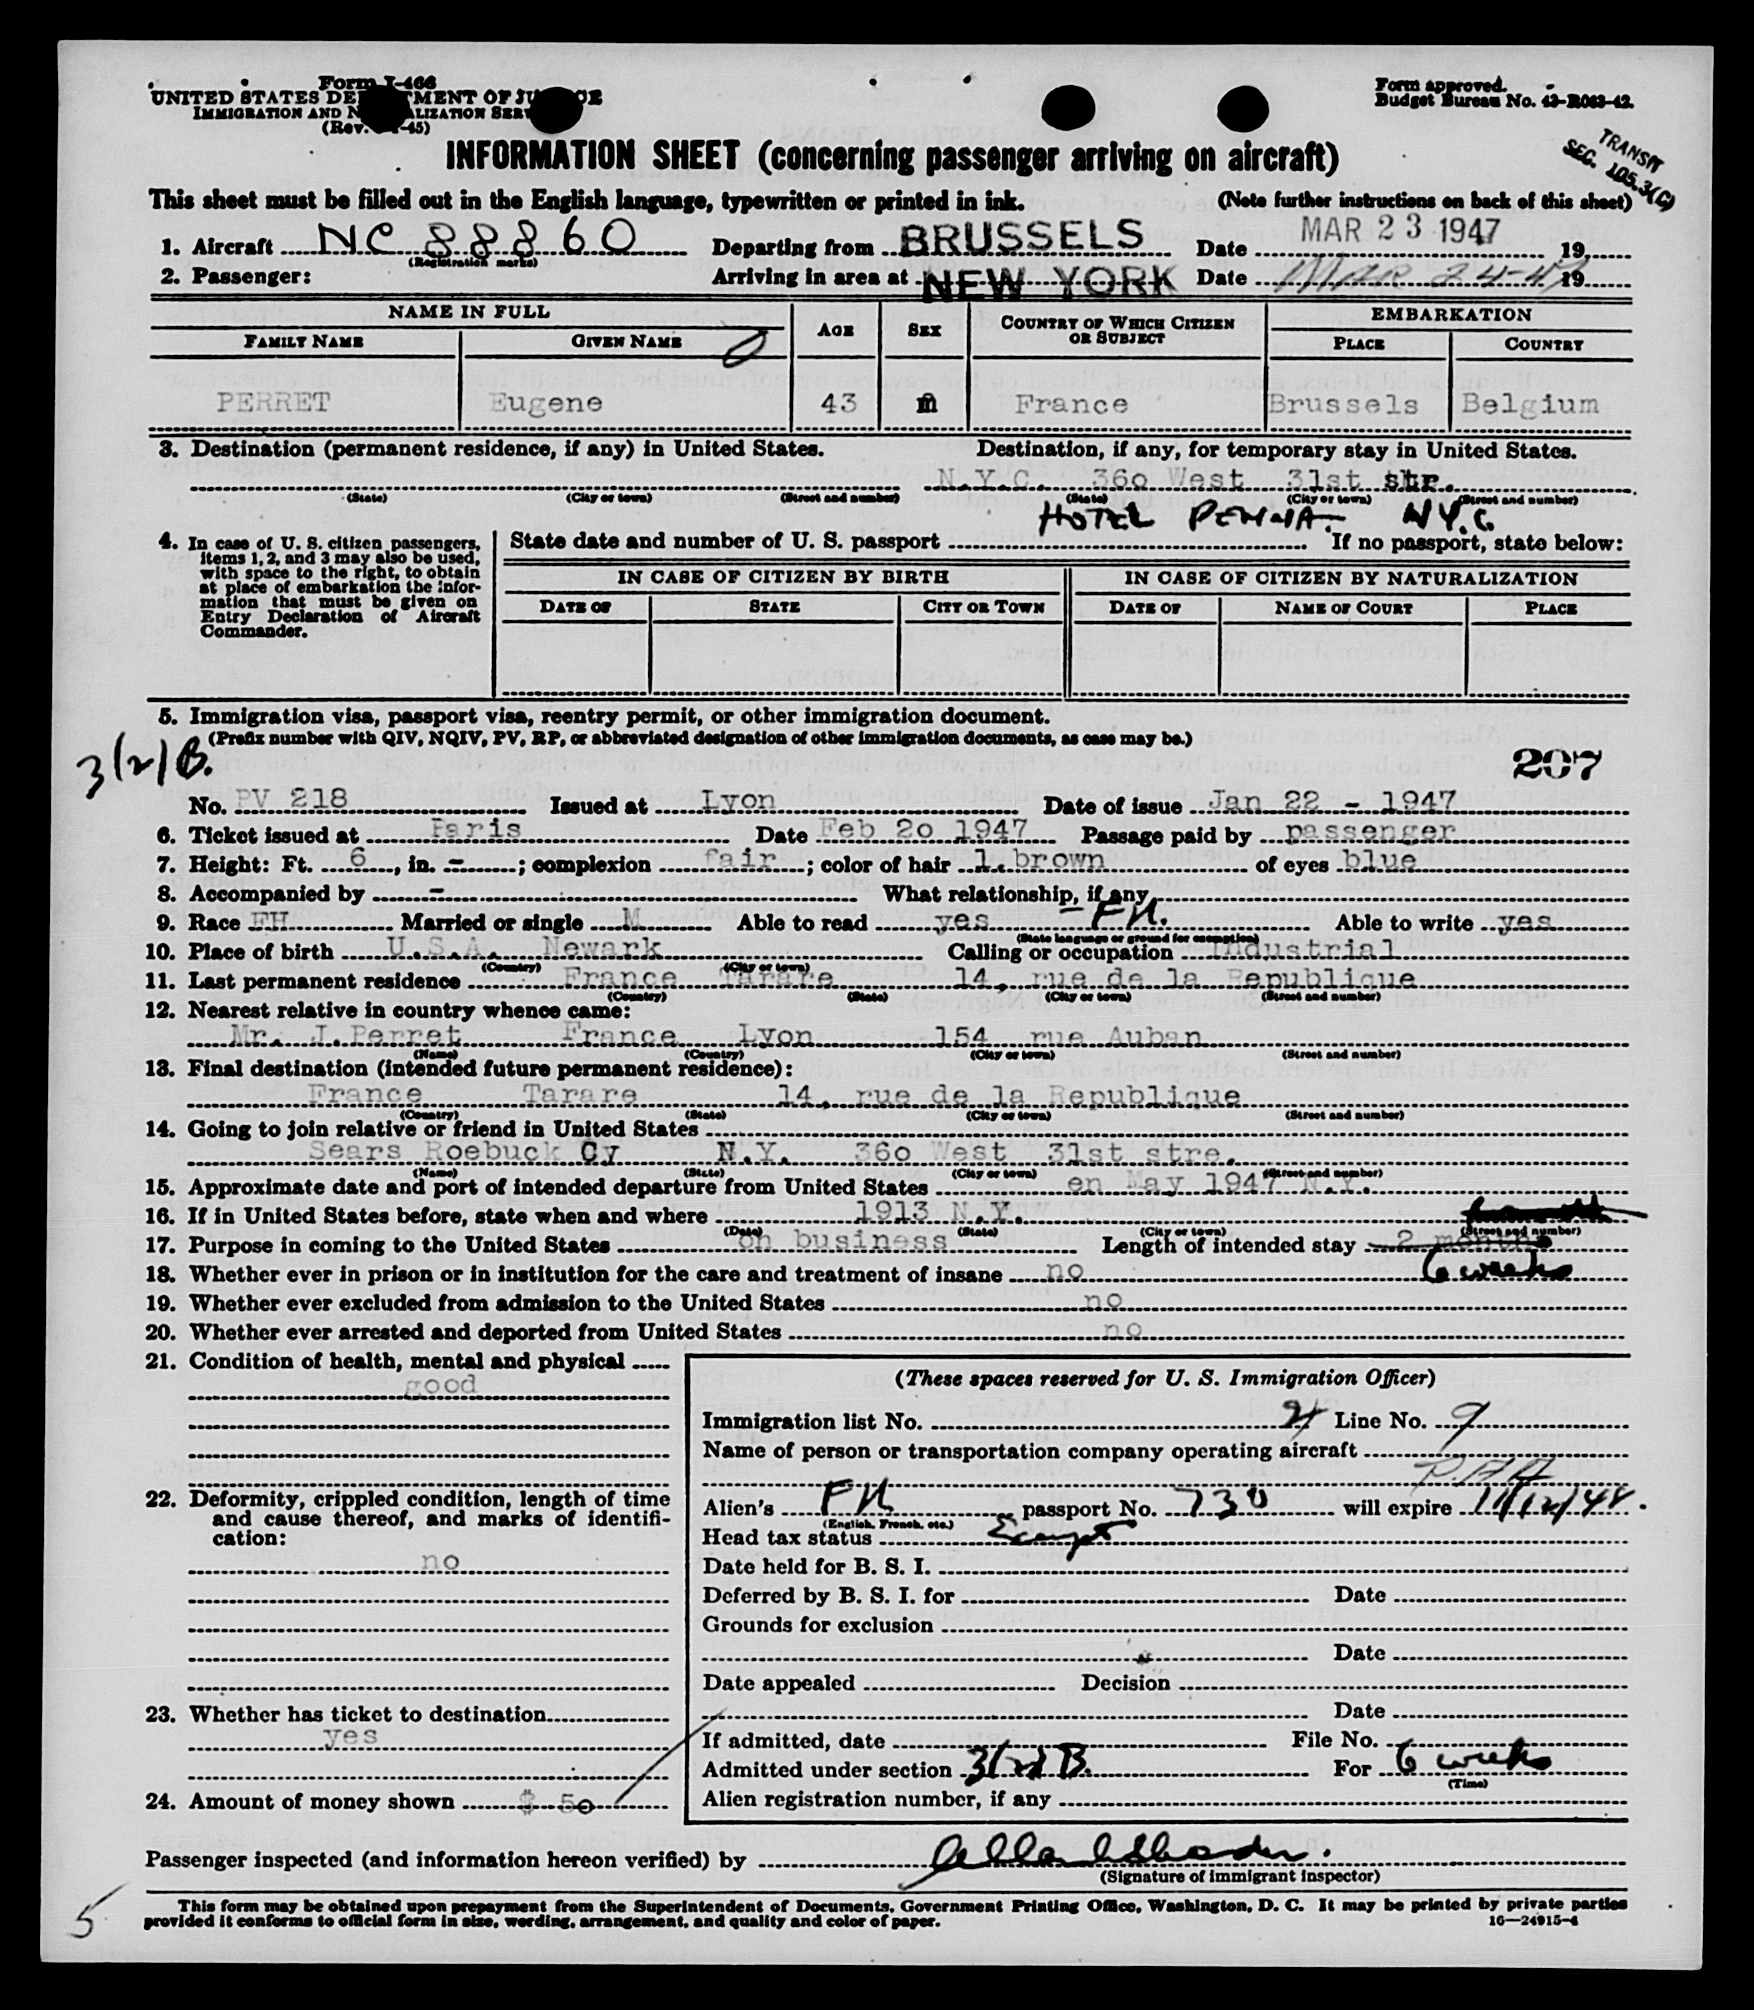 Form I-466
UNITED STATES DE MENT OF JU CE
IMMIGRATION AND N ALIZATION SERV
(Rev. -45)
Form approved.
Budget Bureau No. 43-R063-42.
TRANSIT
SEC. 105.3(C)
INFORMATION SHEET (concerning passenger arriving on aircraft)
This sheet must be filled out in the English language, typewritten or printed in ink. (Note further instructions on back of this sheet)
1. Aircraft NC 88860 Departing from BRUSSELS Date MAR 23 1947 19
(Registration marks)
2. Passenger: Arriving in area at NEW YORK Date Mar 24-47 19
NAME IN FULL AGE SEX COUNTRY OF WHICH CITIZEN OR SUBJECT EMBARKATION
FAMILY NAME GIVEN NAME PLACE COUNTRY
PERRET Eugene 43 m France Brussels Belgium
3. Destination (permanent residence, if any) in United States. Destination, if any, for temporary stay in United States.
N.Y.C. 360 West 31st str.
(State) (City or town) (Street and number) (State) (City or town) (Street and number)
HOTEL PENNA. N.Y.C.
4. In case of U. S. citizen passengers, items 1, 2, and 3 may also be used, with space to the right, to obtain at place of embarkation the information that must be given on Entry Declaration of Aircraft Commander.
State date and number of U. S. passport If no passport, state below:
IN CASE OF CITIZEN BY BIRTH IN CASE OF CITIZEN BY NATURALIZATION
DATE OF STATE CITY OR TOWN DATE OF NAME OF COURT PLACE
5. Immigration visa, passport visa, reentry permit, or other immigration document.
(Prefix number with QIV, NQIV, PV, RP, or abbreviated designation of other immigration documents, as case may be.)
3(2)B.
207
No. PV 218 Issued at Lyon Date of issue Jan 22 - 1947
6. Ticket issued at Paris Date Feb 20 1947 Passage paid by passenger
7. Height: Ft. 6, in. -; complexion fair; color of hair l. brown of eyes blue
8. Accompanied by - What relationship, if any -
9. Race FH Married or single M Able to read yes FH. Able to write yes
(State language or ground for exemption)
10. Place of birth U.S.A. Newark Calling or occupation Industrial
(Country) (City or town)
11. Last permanent residence France Tarare 14, rue de la Republique
(Country) (State) (City or town) (Street and number)
12. Nearest relative in country whence came:
Mr. J. Perret France Lyon 154 rue Auban
(Name) (Country) (City or town) (Street and number)
13. Final destination (intended future permanent residence):
France Tarare 14, rue de la Republique
(Country) (State) (City or town) (Street and number)
14. Going to join relative or friend in United States
Sears Roebuck Cy N.Y. 360 West 31st stre.
(Name) (State) (City or town) (Street and number)
15. Approximate date and port of intended departure from United States en May 1947 N.Y.
16. If in United States before, state when and where 1913 N.Y.
(Date) (State) (City or town) (Street and number)
17. Purpose in coming to the United States on business Length of intended stay 2 months
6 weeks
18. Whether ever in prison or in institution for the care and treatment of insane no
19. Whether ever excluded from admission to the United States no
20. Whether ever arrested and deported from United States no
21. Condition of health, mental and physical
good
22. Deformity, crippled condition, length of time and cause thereof, and marks of identification:
no
23. Whether has ticket to destination
yes
24. Amount of money shown $ 50
(These spaces reserved for U. S. Immigration Officer)
Immigration list No. 21 Line No. 9
Name of person or transportation company operating aircraft
P.A.A
Alien's FH passport No. 730 will expire 11/12/48.
(English, French, etc.)
Head tax status Exempt
Date held for B. S. I.
Deferred by B. S. I. for Date
Grounds for exclusion
Date
Date appealed Decision
Date
If admitted, date File No.
Admitted under section 3(2)B. For 6 weeks
(Time)
Alien registration number, if any
Passenger inspected (and information hereon verified) by
(Signature of immigrant inspector)
5
This form may be obtained upon prepayment from the Superintendent of Documents, Government Printing Office, Washington, D. C. It may be printed by private parties
provided it conforms to official form in size, wording, arrangement, and quality and color of paper. 16—24915-4